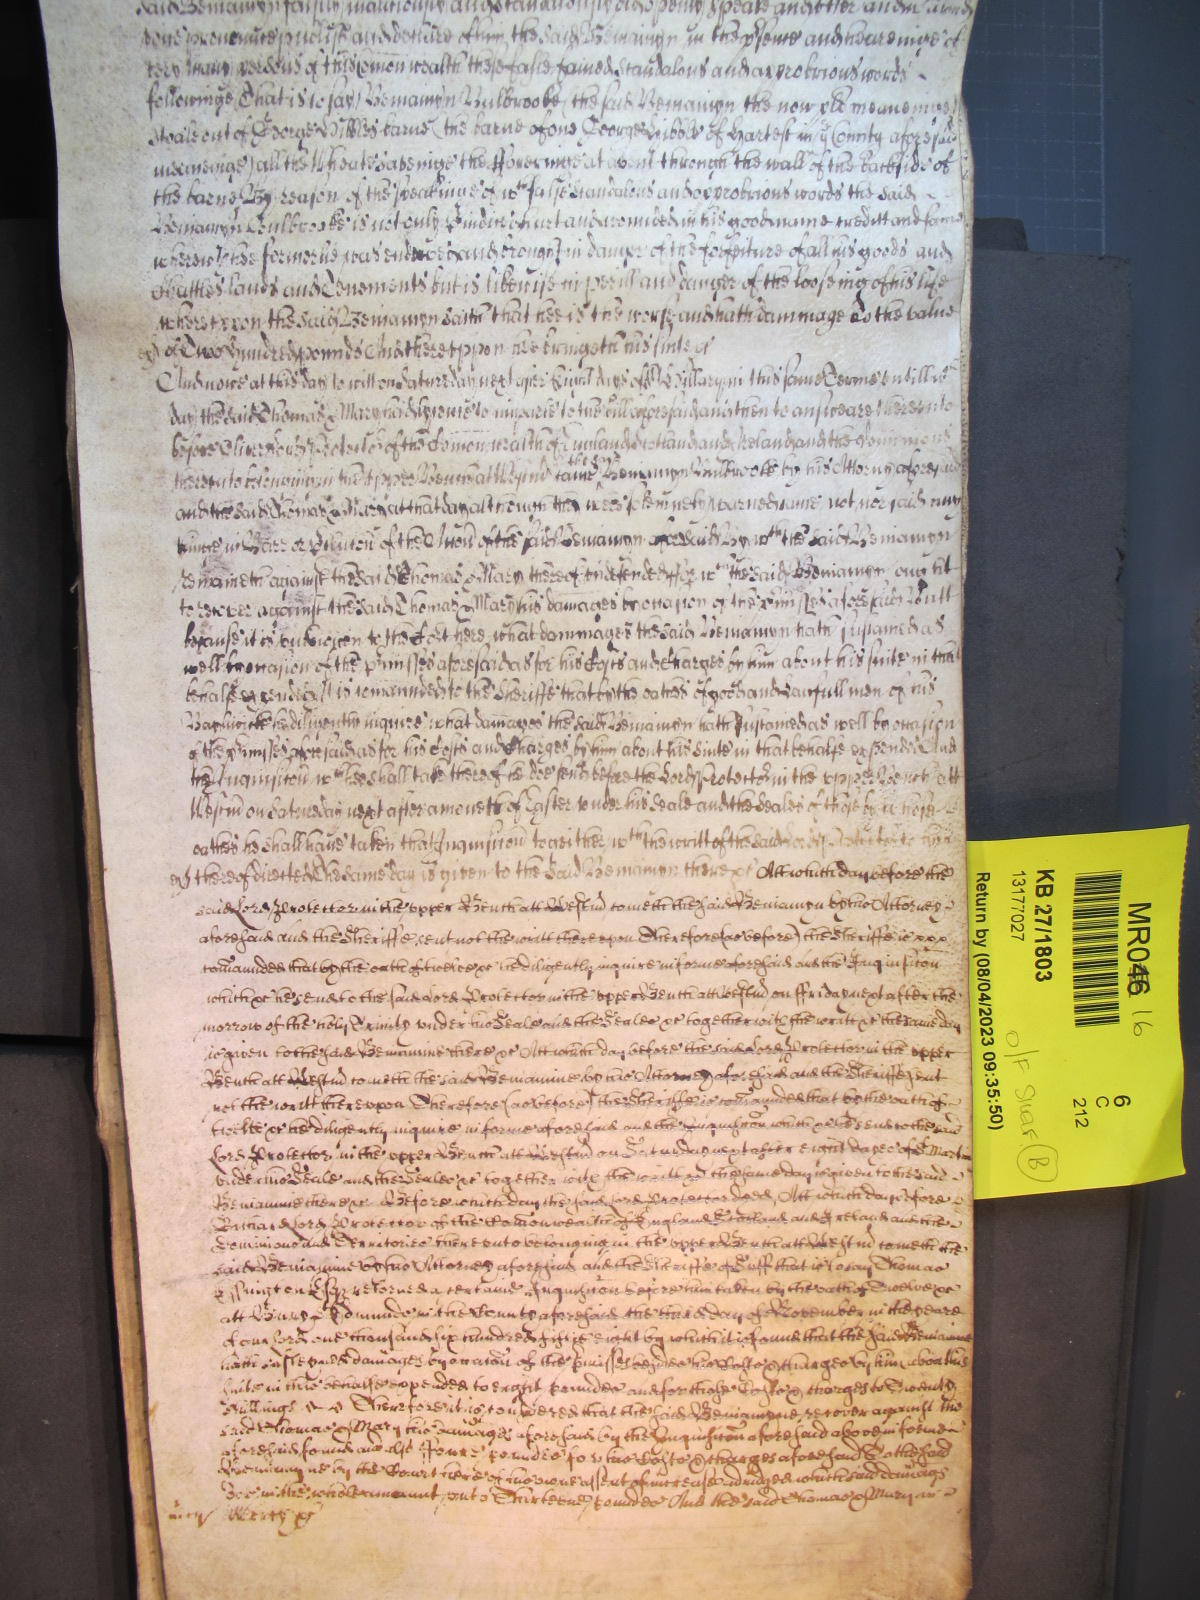 said Beniamyn falsly maliciously and scandalously did openly speake and utter and in
in the psence and heareinge of
very many persons of this Comon wealth these false fained scandalous and approbrious words
followinge That is to say Beniamyn Bulbrooke (the said Beniamyn the now plt meaneinge)
stole out of George Gibbs barne (the barne of one George Gibbs of Hartest in ye County aforesaid
meaneinge) all the Wheate at through the wall of the backside of
the barne By reason of the speakinge of wch false scandalous and opprobrious words the said
Beniamyn Bulbrooke is not only hurt and in his good name creditt and fame
wherewth he formerlie was endewed and brought in danger of the forfeiture of all his goods and
Chattles lands and Tenements but is likewise in perill and danger of the looseing of his life
whereuppon the said Beniamyn saith that hee is the worse and hath dammage to the value
of Two hundred pounds And thereuppon hee bringeth his suite &c
And nowe at this day to witt on Saturday next after Eight dayes of St Hillary in this same Terme untill wch
day the said Thomas & Mary had lycence to imparle to the bill aforesaid and then to answeare thereunto
before Oliver Lord Protector of the Comonwealth of England Scotland and Ireland and the dominions
thereunto belonginge in the upper Bench att Westm came the said Beniamyn Bulbrooke by his Attorny aforesaid
and the said Thomas & Mary at that day although they were solemnely warned came not nor said any
thinge in Barr or of the Accon of the said Beniamyn aforesaid By wch the said Beniamyn
remaineth against the said Thomas & Mary thereof undefended ffor wch the said Beniamyn ought
to recover against the said Thomas & Mary his damages by occasion of the pmisses aforesaid But
because it is unknowen to the Cort here what dammages the said Beniamyn hath sustained as
well by occasion of the pmisses aforesaid as for his Costs and Charges by him about his suite in that
behalfe expended It is comannded to the Sheriffe that by the oathes of good and lawfull men of his
Baylywick he diligently inquire what damages the said Beniamyn hath sustained as well by occasion
of the pmisses aforesaid as for his Costs and Charges by him about his suite in that behalfe expended And
the Inquisicon wch hee shall take thereof he doe send before the Lord Protector in the upper Bench att
Westm on Saturday next after a moneth of Easter under his Seale and the Seales of those by whose
oathes he shall have taken that Inquisicon togeither wth the writt of the said Lord Protector to him
thereof directed The same day is given to the said Beniamyn there &c Att which day before the
said Lord Protector in the upper Bench att Westm cometh the said Beniamyn by his Attorney
aforesaid and the Sheriffe sent not the writt thereupon Therefore (as before) the Sheriffe is
comannded that by the oath of twelve &c he diligently inquire in forme aforesaid and the Inquisicon
which &c he send to the said Lord Protector in the upper Bench att Westm on Friday next after the
morrow of the holy Trinity under his Seale and the Seales &c together with the writt &c the same day
is given to the said Beniamine there &c Att which day before the said Lord Protector in the upper
Bench att Westm cometh the said Beniamine by his Attorney aforesaid and the Sheriffe sent
not the writt thereupon Therefore (as before) the Sheriffe is comannded that by the oath of
twelve &c he diligently inquire in forme aforesaid and the Inquisicon which &c he send to the said
Lord Protector in the upper Bench att Westm on Saturday next after eight dayes of St Martin
under his Seale and the Seales &c together with the writt &c the same day is given to the said
Beniamine there &c Before which day the said Lord Protector dyed, Att which day before
Richard Lord Protector of the Comonwealth of England Scotland and Ireland and the
Dominions and Territories thereunto belonging in the upper Bench att Westm cometh the
said Beniamine by his Attorney aforesaid and the Sheriffe of Suff that is to say Thomas
Esqr retorned a certaine Inquisicon before him taken by the oath of Twelve &c
att Bury St Edmunds in the County aforesaid the third day of November in the yeare
of our Lord one thousand six hundred fiftie eight by which it is found that the said Beniamine
hath susteyned damages by occasion of the pmisses besides his Costs & charges by him about his
suite in this behalfe expended to eight pounds and for those Costs & charges to Twenty
shillings Therefore it is considered that the said Beniamyne recover against the
said Thomas & Mary his damages aforesaid by the Inquisicon aforesaid above in forme
aforesaid found and also Foure pounds for his Costs & charges aforesaid to the said
Beniamyne by the Court here of his owne assent of increase adiudged which said damages
doe in the whole amount unto Thirteene pounds And the said Thomas & Mary in
mercy &c
MR046 16
6
C
212
KB 27/1803
13177027
Return by (08/04/2023 09:35:50)
O/F Suas
B